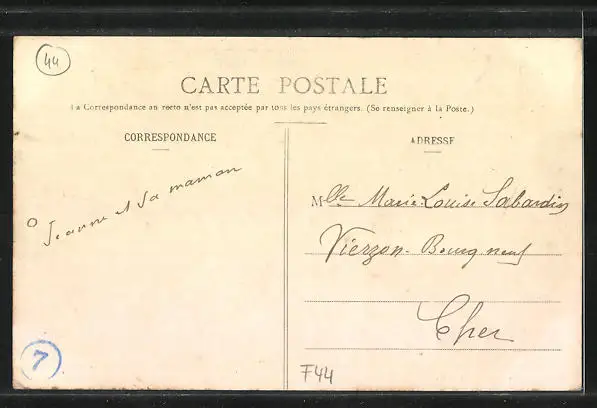 44
CARTE POSTALE
La Correspondance au recto n'est pas acceptée par tous les pays étrangers. (Se renseigner à la Poste.)
CORRESPONDANCE
Jeanne et sa maman
ADRESSE
Mlle Marie-Louise Sabardin
Vierzon-Bourgneuf
Cher
7
F44